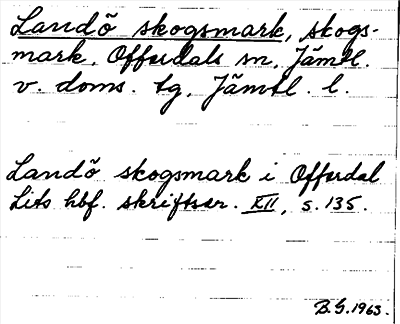 Landö skogsmark, skogs-
mark, Offerdals sn, Jämtl.
v. doms. tg, Jämtl. l.
Landö skogsmark i Offerdal
Lits hbf. skriftser. XII, s. 135.
B.G. 1963.